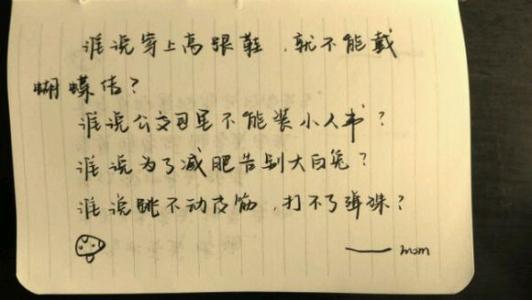 谁说穿上高跟鞋，就不能戴
蝴蝶结？
谁说公文包里不能装小人书？
谁说为了减肥告别大白兔？
谁说跳不动皮筋，打不了弹珠？
—— mom